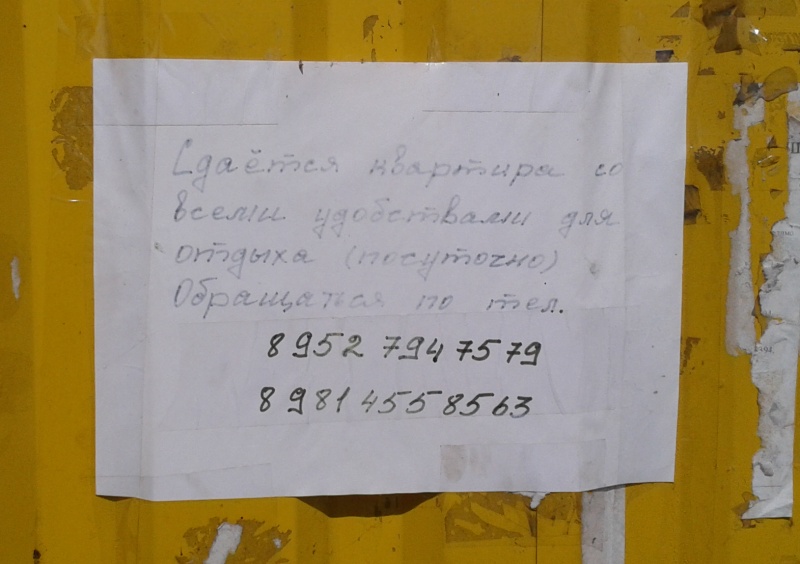 Сдаётся квартира со
всеми удобствами для
отдыха (посуточно)
Обращаться по тел.
8 952 794 75 79
8 981 455 85 63